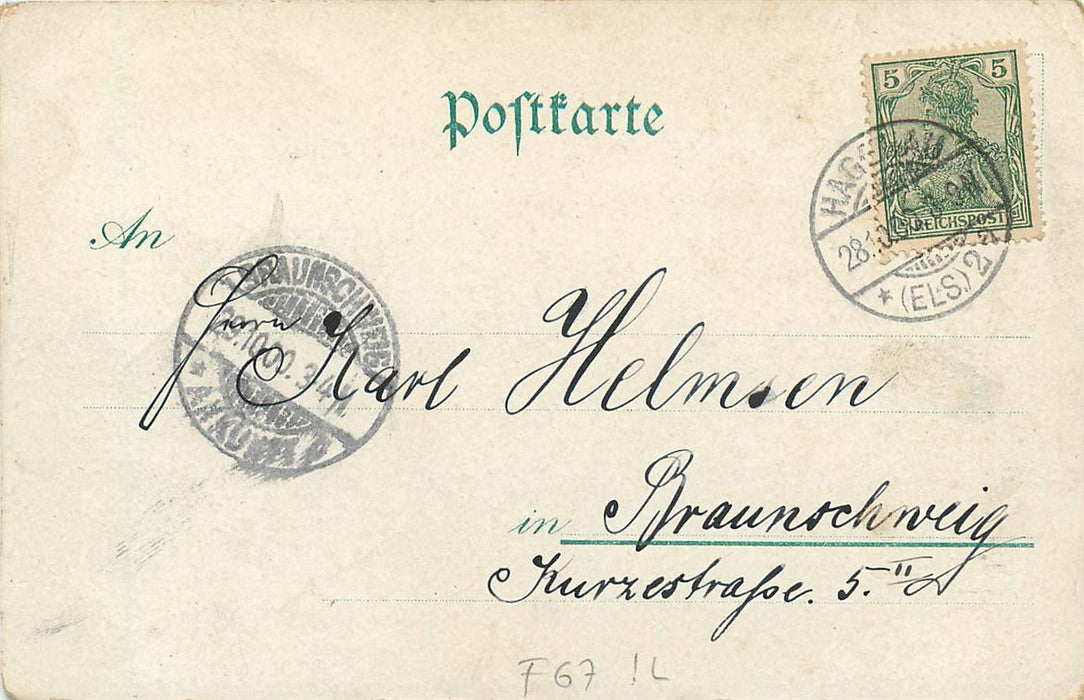 Postkarte
5 5
REICHSPOST
HAGENAU
(ELS.) 2
An
BRAUNSCHWEIG
ANKUNFT
Herrn Karl Helmsen
in Braunschweig
Kurzestraße. 5. II
F67 !L